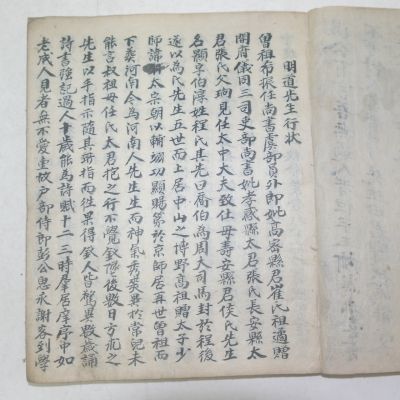 明道先生行状
曾祖希振任尚書虞部員外郎妣高密縣君崔氏祖遹贈
開府儀同三司吏部尚書妣孝感縣太君張氏長安縣太
君張氏父珦見任太中大夫致仕母壽安縣君侯氏先生
名顥字伯淳姓程氏其先曰喬伯為周大司馬封於程後
遂以為氏先生五世而上居中山之博野高祖贈太子少
師諱太宗朝以輔翊功顯賜第於京師居再世曾祖而
下葬河南今為河南人先生生而神氣秀爽異於常兒未
能言叔祖母任氏太君抱之行不覺釵墜後數日方求之
先生以手指示隨其所指而往果得釵人皆驚異數歲誦
詩書强記過人十歲能為詩賦十二三時羣居庠序中如
老成人見者無不愛重故戶部侍郎彭公思永謝客到學